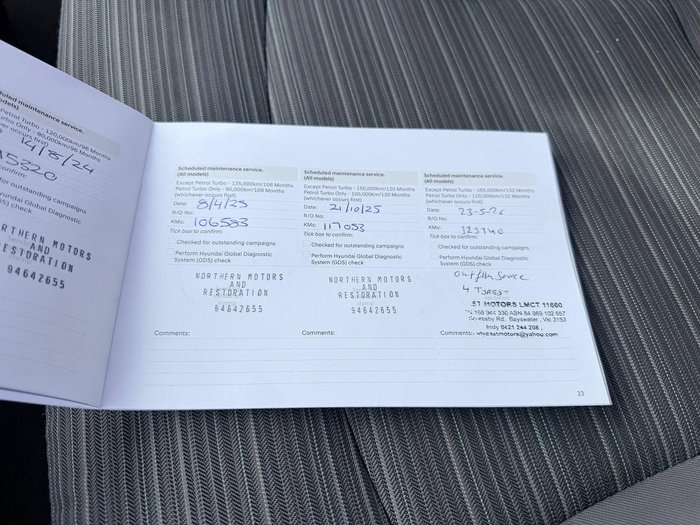 eduled maintenance service.
models)
Petrol Turbo - 120,000km/96 Months
rbo Only - 80,000km/96 Months
ever occurs first)
12/8/24
95320
onfirm:
for outstanding campaigns
Hyundai Global Diagnostic
GDS) check
RTHERN MOTORS
AND
RESTORATION
94642655
Scheduled maintenance service.
(All models)
Except Petrol Turbo - 135,000km/108 Months
Petrol Turbo Only - 90,000km/108 Months
(whichever occurs first)
Date: 8/4/25
R/O No:
KMs: 106583
Tick box to confirm:
Checked for outstanding campaigns
Perform Hyundai Global Diagnostic
System (GDS) check
NORTHERN MOTORS
AND
RESTORATION
94642655
Comments:
Scheduled maintenance service.
(All models)
Except Petrol Turbo - 150,000km/120 Months
Petrol Turbo Only - 100,000km/120 Months
(whichever occurs first)
Date: 21/10/25
R/O No:
KMs: 117053
Tick box to confirm:
Checked for outstanding campaigns
Perform Hyundai Global Diagnostic
System (GDS) check
NORTHERN MOTORS
AND
RESTORATION
94642655
Comments:
Scheduled maintenance service.
(All models)
Except Petrol Turbo - 165,000km/132 Months
Petrol Turbo Only - 110,000km/132 Months
(whichever occurs first)
Date: 23-5-26
R/O No:
KMs: 123740
Tick box to confirm:
Checked for outstanding campaigns
Perform Hyundai Global Diagnostic
System (GDS) check
4
MOTORS LMCT 11660
168 944 330 ABN 84 869 102 657
Rd, Bayswater, Vic 3153
Indy 0421 244 208
Comments:
23